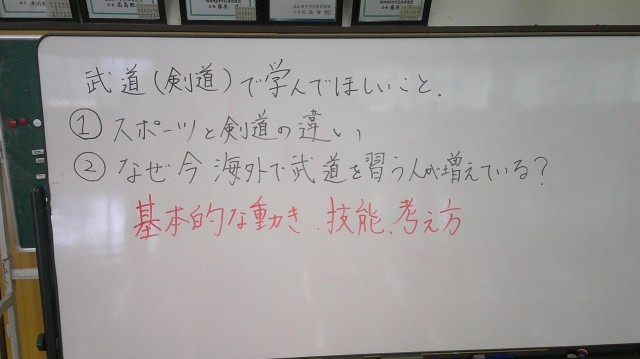 武道(剣道)で学んでほしいこと.
① スポーツと剣道の違い
② なぜ今海外で武道を習う人が増えている?
基本的な動き、技能、考え方